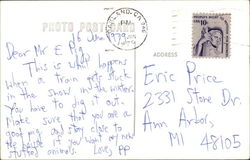 PHOTO POSTCARD
16 June
PM
1979
10c
Dear Mr E P,
This is what happens
when a train gets stuck
in the snow in the winter.
You have to dig it out.
Make sure that you are a
good pig and stay close to
the house if you want any new
stuffed animals. Love, PP
Eric Price
2331 Stone Dr.
Ann Arbor,
MI 48105